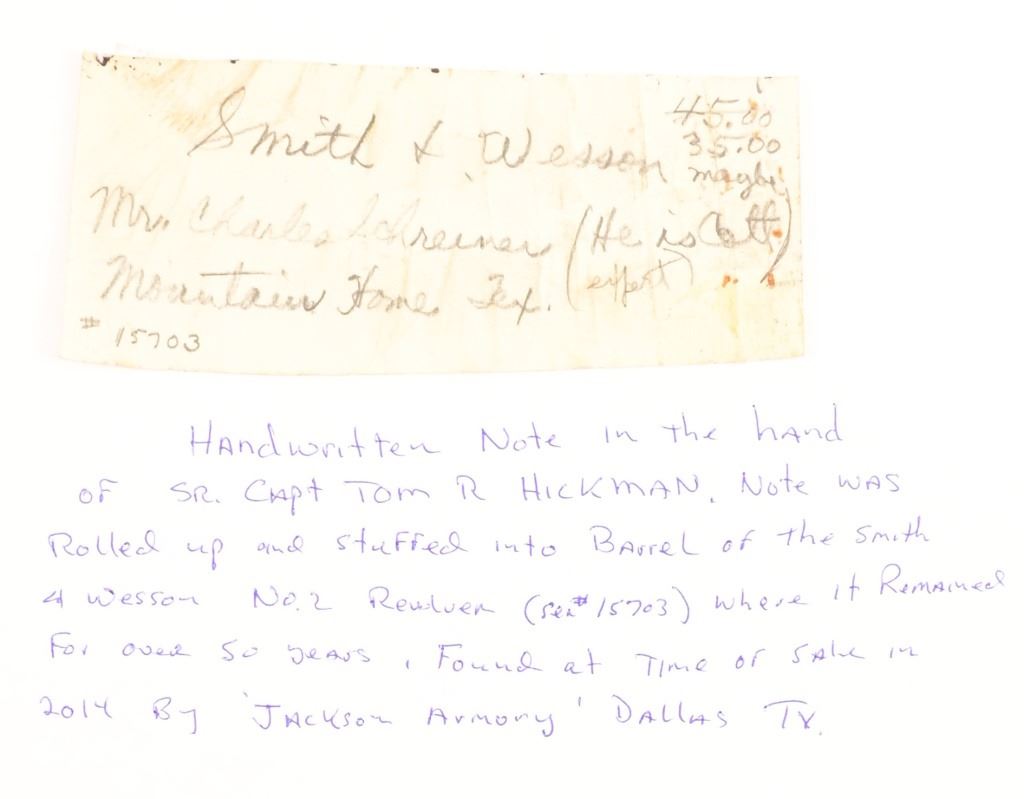 Smith & Wesson
45.00
35.00
maybe
Mr. Charles Schreiner (He is Colt)
Mountain Home Tex. (expert)
# 15703
Handwritten Note in the hand
of SR. Capt Tom R HICKMAN. Note was
Rolled up and stuffed into Barrel of the Smith
& Wesson No. 2 Revolver (ser# 15703) where it Remained
For over 50 years. Found at Time of Sale in
2014 By 'Jackson Armory' Dallas Tx.